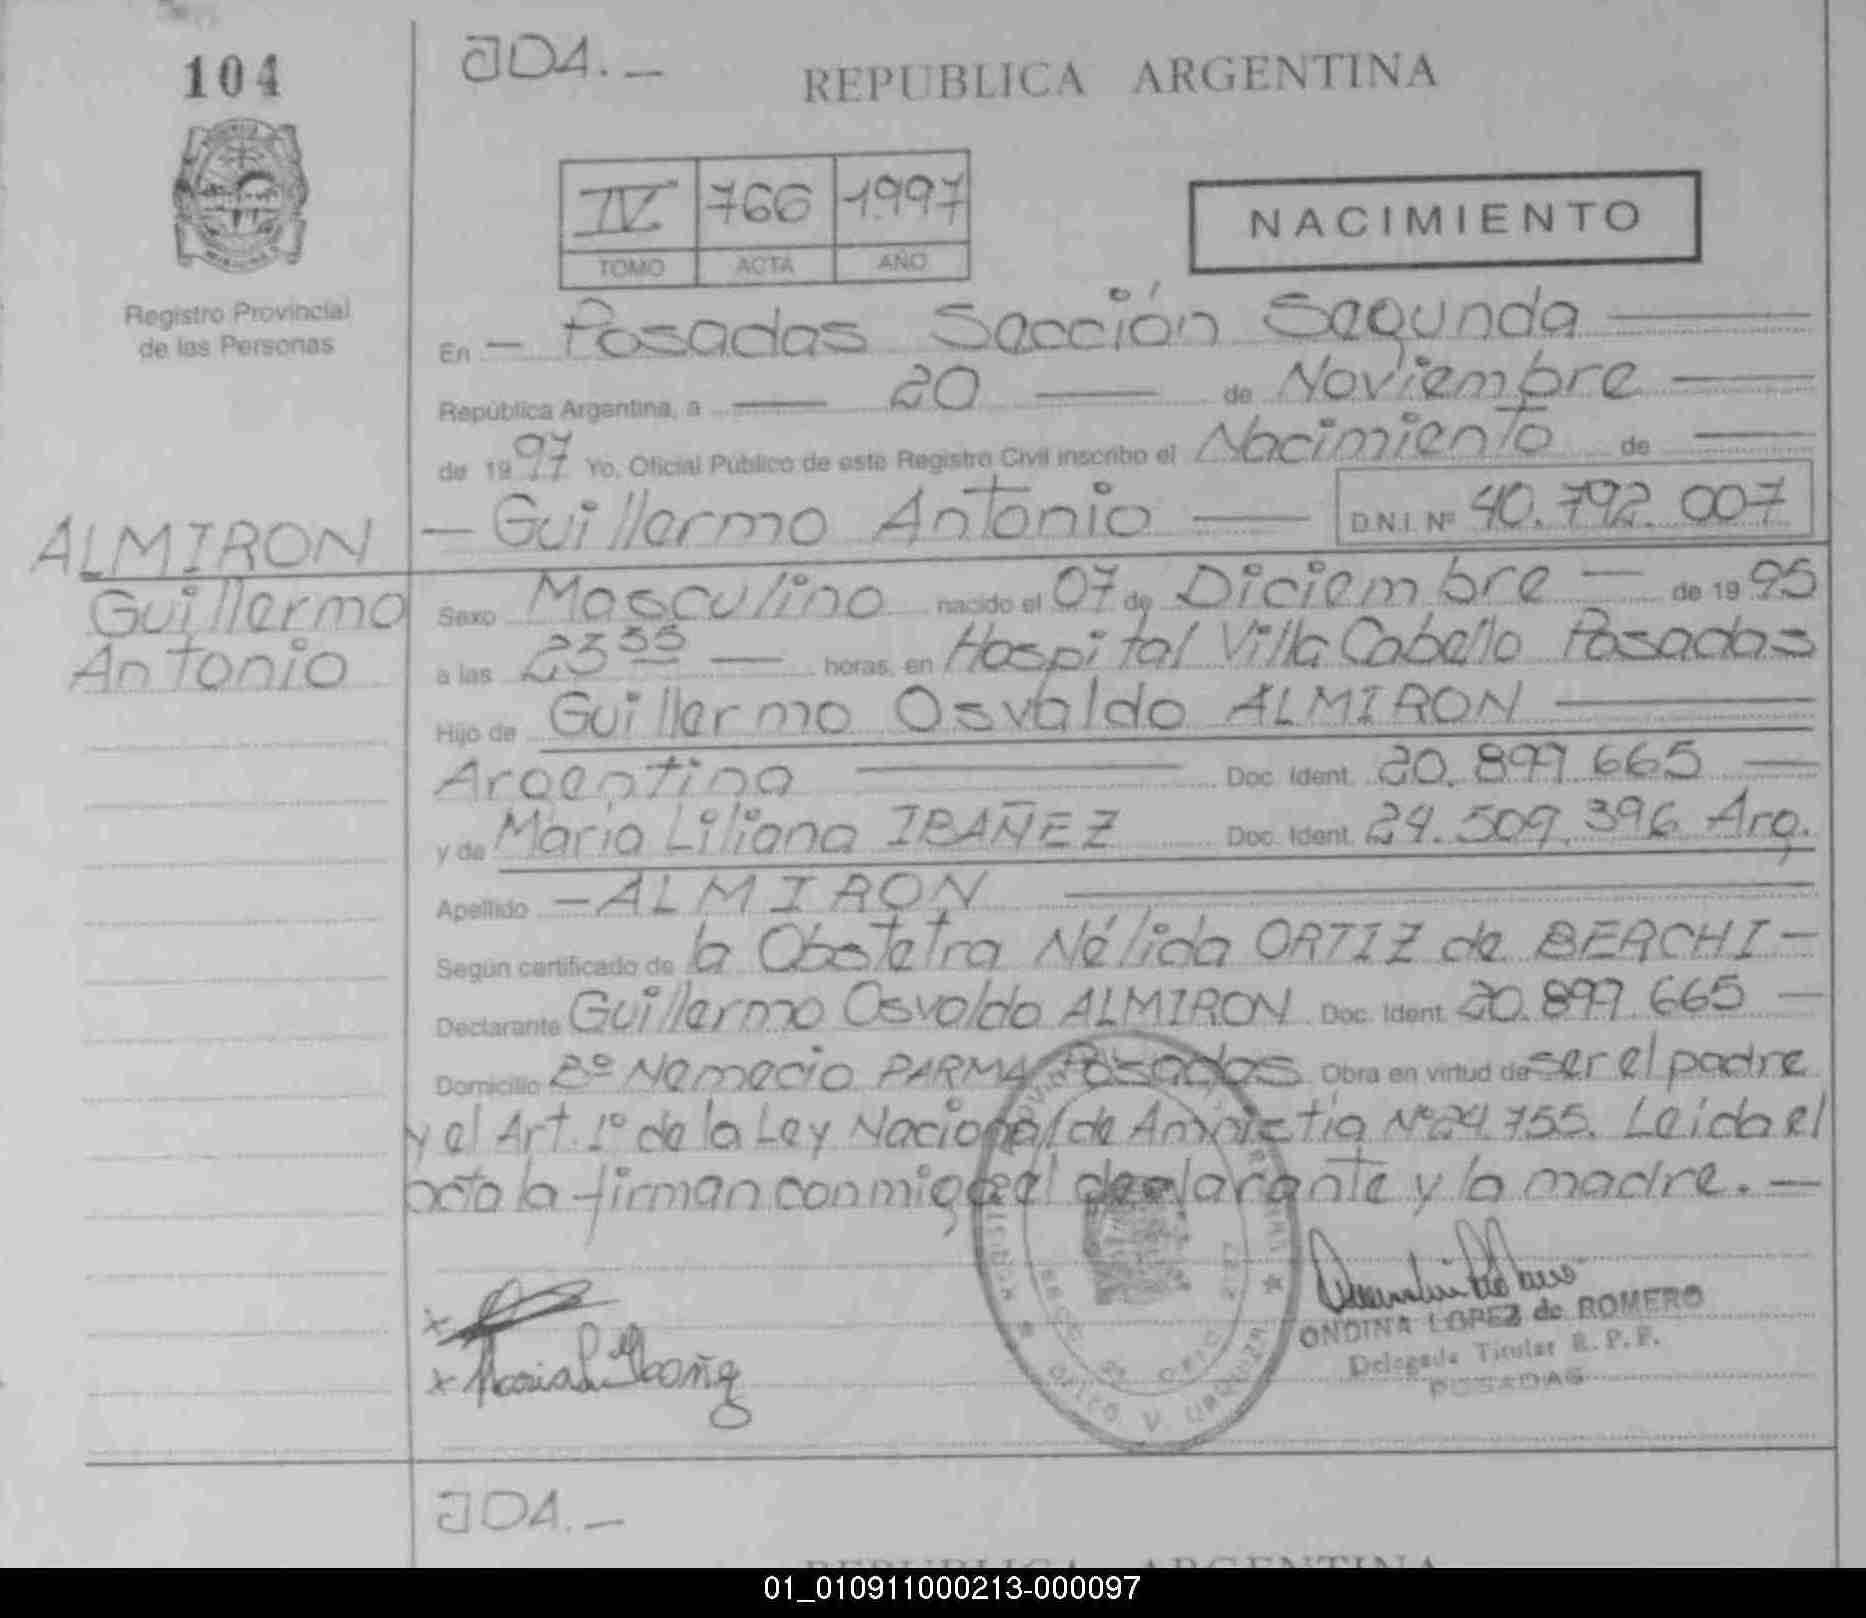 104
JDA.—
REPUBLICA ARGENTINA
IV 766 1997
TOMO ACTA AÑO
NACIMIENTO
Registro Provincial
de las Personas
En — Posadas Sección Segunda —
República Argentina, a — 20 — de Noviembre —
de 1997 Yo, Oficial Público de este Registro Civil inscribo el Nacimiento de —
— Guillermo Antonio — D.N.I. Nº 40.792.007
ALMIRON
Guillermo
Antonio
Sexo Masculino nacido el 07 de Diciembre — de 1995
a las 23 55 — horas, en Hospital Villa Cabello Posadas
Hijo de Guillermo Osvaldo ALMIRON —
Argentino — Doc. Ident. 20.899.665 —
y de María Liliana IBAÑEZ Doc. Ident. 24.509.396 Arg.
Apellido — ALMIRON —
Según certificado de la Obstetra Nélida ORTIZ de BERCHI —
Declarante Guillermo Osvaldo ALMIRON Doc. Ident. 20.899.665 —
Domicilio Bº Nemecio PARMA Posadas Obra en virtud de ser el padre
y el Art. 1º de la Ley Nacional de Amnistía Nº 24.755. Leída el
acta la firman conmigo el declarante y la madre. —
x
x Maria L Ibañez
ONDINA LOPEZ de ROMERO
Delegada Titular R.P.P.
POSADAS
JDA.—
REPUBLICA ARGENTINA
01_010911000213-000097